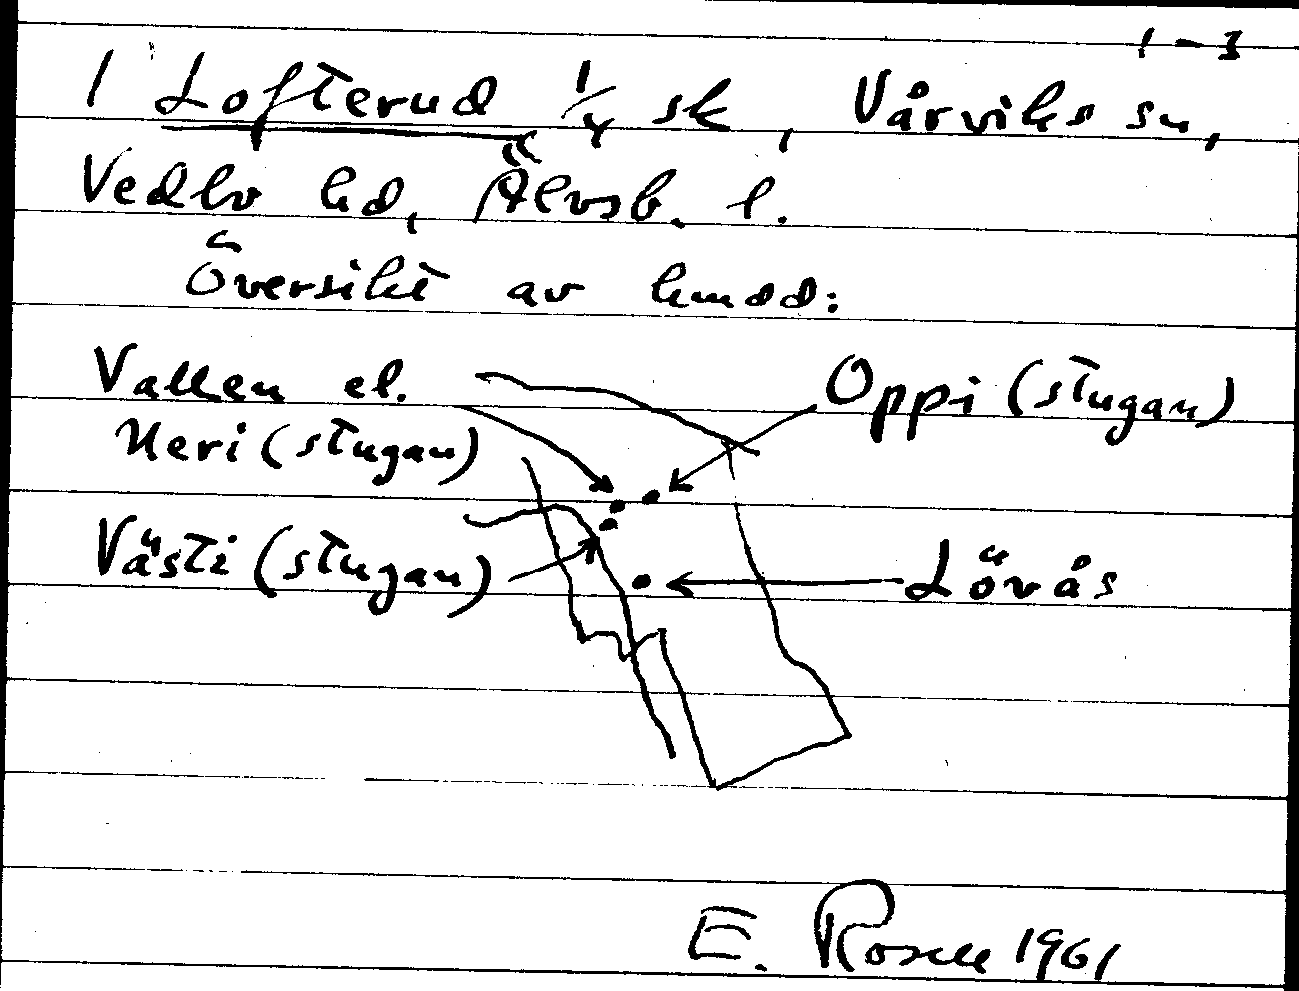 1-3
1 Lofterud 1/4 sk, Vårviks sn,
Vedbo hd, Älvsb. l.
Översikt av
Vallen el.
Neri (stugan)
Oppi (stugan)
Västi (stugan)
Lövås
E. Rosell 1961